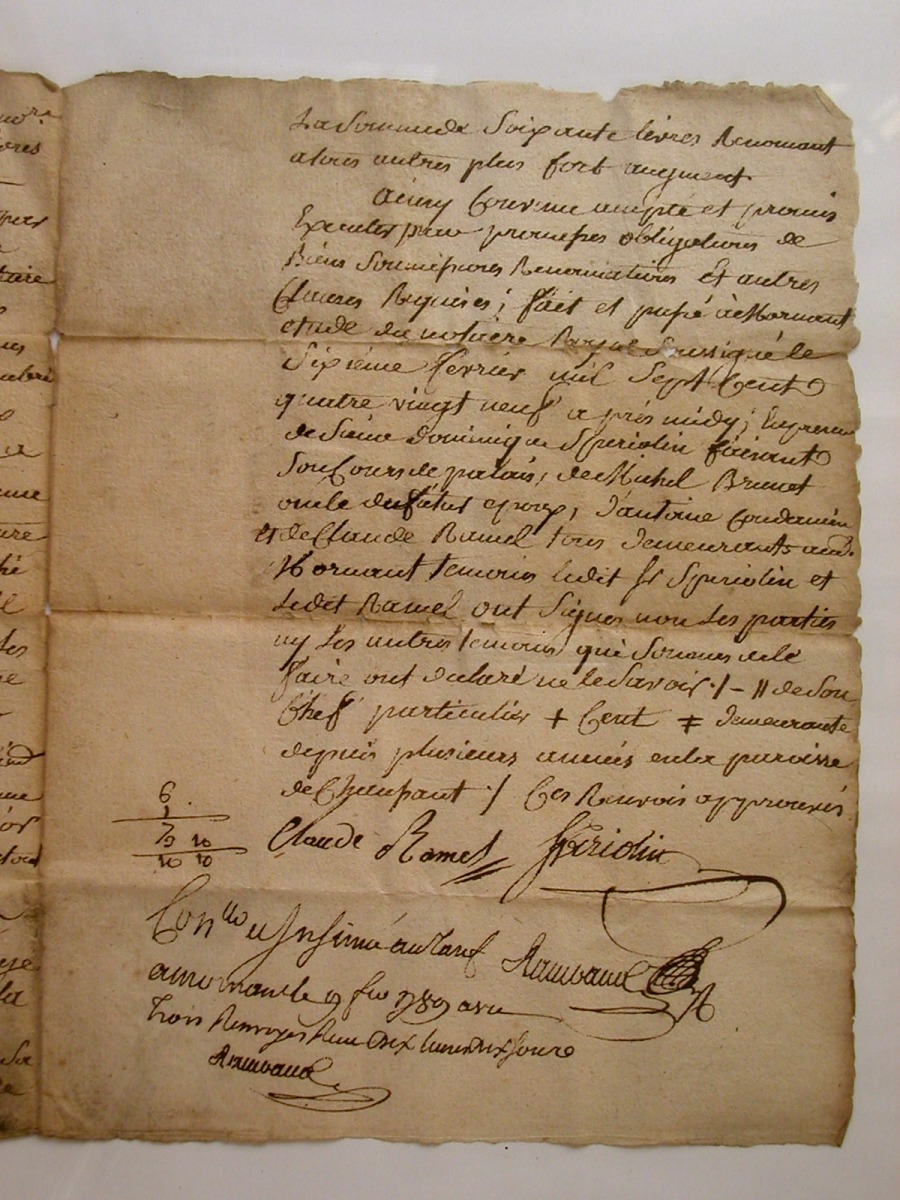 La Somme de Soixante livres Renoncant
alous autres plus fort augment.
ainsy Convenu accepté et promis
Executer par promesses obligations de
Biens Soumissions Renonciations Et autres
Clauses Requises; fait et passé à Mornant
etude du notaire Royal Soussigné le
Sixième fevrier mil Sept Cent
quatre vingt neuf après midy; En presence
de Sieur dominique Speriolin faisant
Son Cours de palais, de Michel Brunet
oncle du futur epoux, d'antoine Condamin
et de Claude Ramel tous demeurants aud.
Mornant temoins ledit Sr Speriolin et
Ledit Ramel ont Signes non Les parties
ny Les autres temoins qui Sommés de le
faire ont declaré ne le Savoir ./ - // de Son
Chef particulier + Cent ‡ demeurante
depuis plusieurs années en la paroisse
de Chaussant ·/ Ces Renvois approuvés
6
1
10
10 10
Claude Ramel Speriolin
Con.llé et Insinué au Tarif
a mornant le 9 fev 1789 avec
trois Renvoyes Reçu dix Livres dix Sous